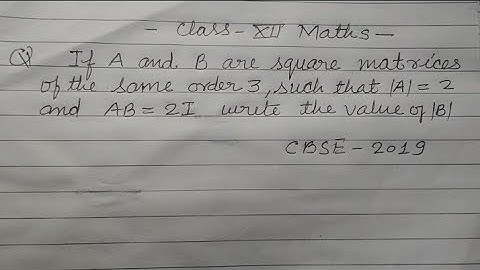 - Class - XII Maths -
Q If A and B are square matrices
of the same order 3, such that |A| = 2
and AB = 2I write the value of |B|
CBSE - 2019